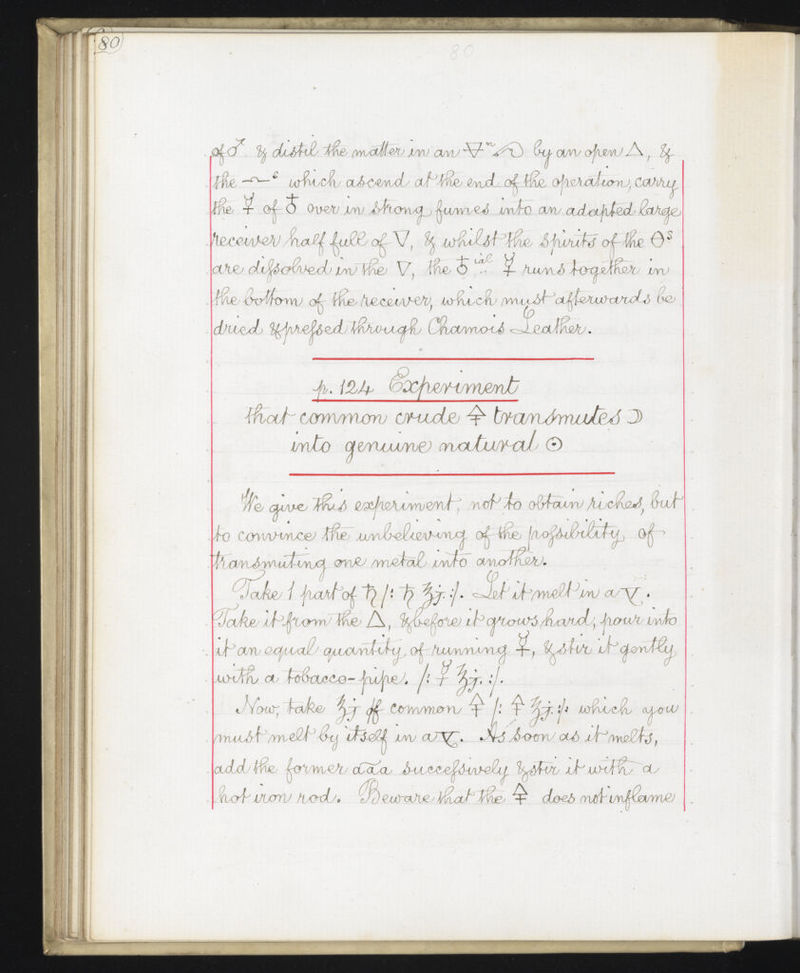 80
80
of ♂ & distil the matter in an by an open △, &
the which ascend at the end of the operation, carry
the ☿ of ♁ over in strong fumes into an adapted large
receiver half full of ▽, & whilst the spirits of the ⊖s
are difsolved in the ▽, the ♁ial ☿ runs together in
the bottom of the receiver, which must afterwards be
dried & prefsed through Chamois Leather.
p. 124 Experiment
that common crude 🜍 transmutes ☽
into genuine natural ☉
We give this experiment, not to obtain riches, but
to convince the unbelieving of the pofsibility of
transmuting one metal into another.
Take 1 part of ♄ /: ♄ ℥j. :/. Let it melt in a 🜿.
Take it from the △, & before it grows hard, pour into
it an equal quantity of running ☿, & stir it gently
with a tobacco-pipe. /: ☿ ℥j. :/.
Now, take ℥j of common 🜍 /: 🜍 ℥j. :/. which you
must melt by itself in a 🜿. As soon as it melts,
add the former aaa succefsively & stir it with a
hot iron rod. Beware that the 🜍 does not inflame